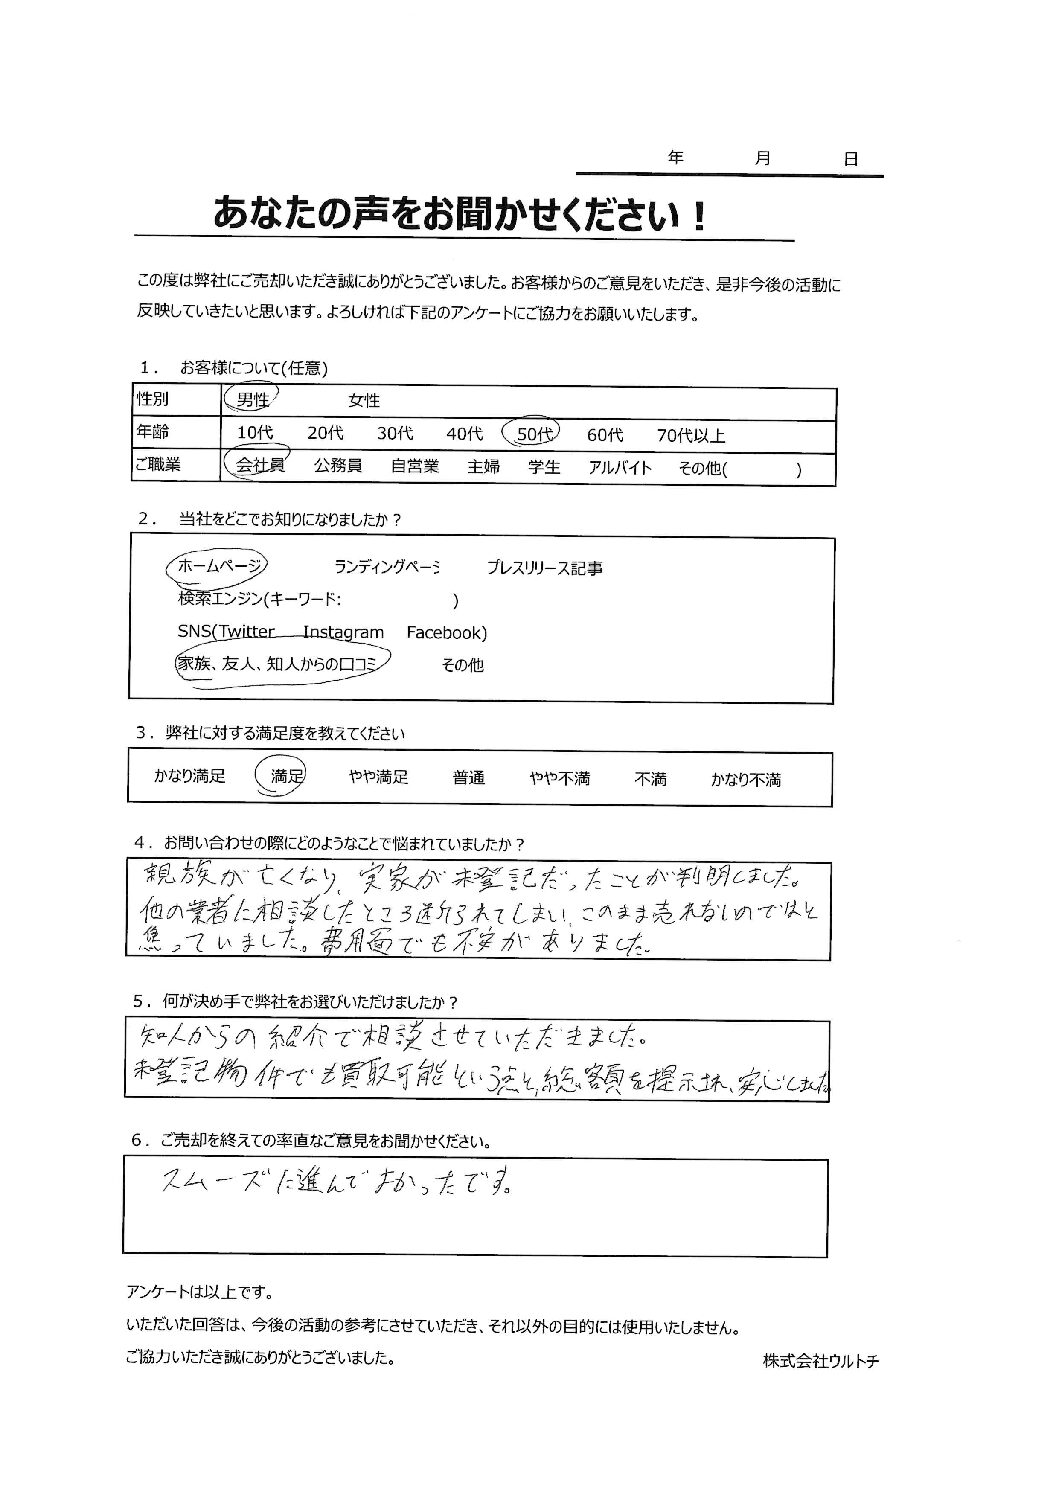 年 月 日
あなたの声をお聞かせください！
この度は弊社にご売却いただき誠にありがとうございました。お客様からのご意見をいただき、是非今後の活動に
反映していきたいと思います。よろしければ下記のアンケートにご協力をお願いいたします。
１． お客様について(任意)
性別 男性 女性
年齢 10代 20代 30代 40代 50代 60代 70代以上
ご職業 会社員 公務員 自営業 主婦 学生 アルバイト その他( )
２． 当社をどこでお知りになりましたか？
ホームページ ランディングページ プレスリリース記事
検索エンジン(キーワード: )
SNS(Twitter Instagram Facebook)
家族、友人、知人からの口コミ その他
３．弊社に対する満足度を教えてください
かなり満足 満足 やや満足 普通 やや不満 不満 かなり不満
４．お問い合わせの際にどのようなことで悩まれていましたか？
親族が亡くなり、実家が未登記だったことが判明しました。
他の業者に相談したところ断られてしまい、このまま売れないのではと
焦っていました。費用面でも不安がありました。
５．何が決め手で弊社をお選びいただけましたか？
知人からの紹介で相談させていただきました。
未登記物件でも買取可能という点と、総額を提示され、安心しました
６．ご売却を終えての率直なご意見をお聞かせください。
スムーズに進んでよかったです。
アンケートは以上です。
いただいた回答は、今後の活動の参考にさせていただき、それ以外の目的には使用いたしません。
ご協力いただき誠にありがとうございました。
株式会社ウルトチ